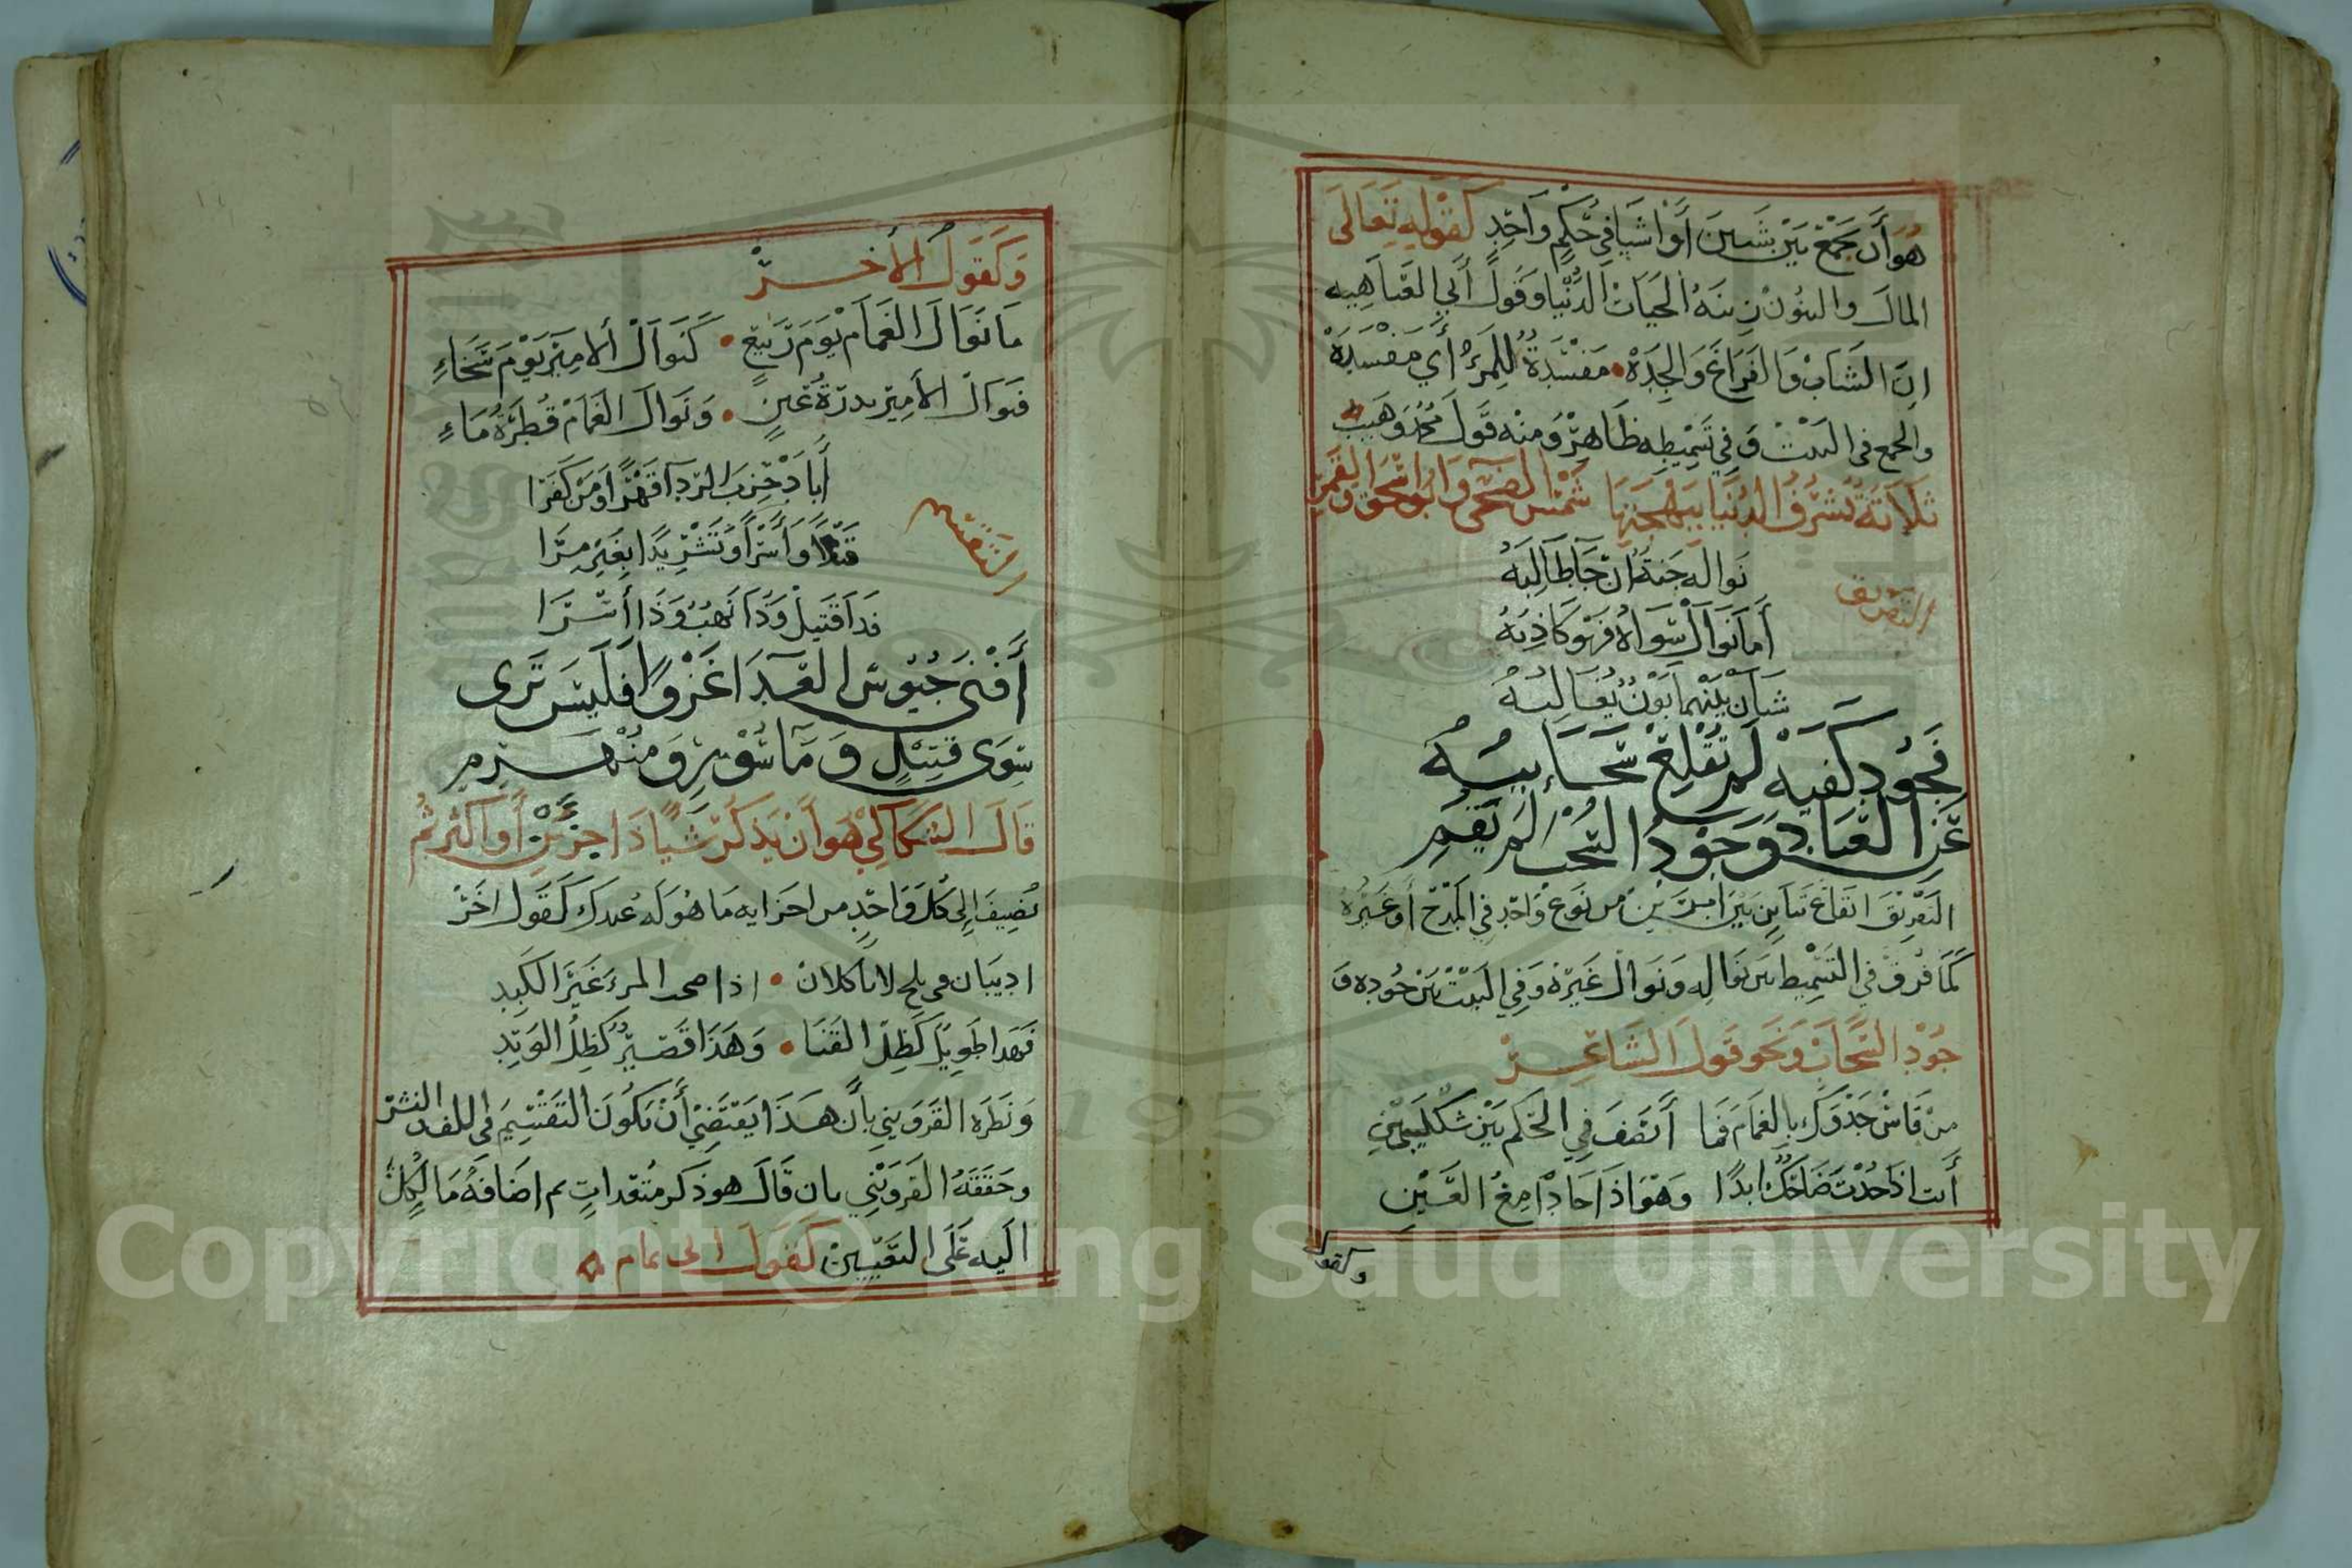 هُوَ أَن جَمْعَ بَيْنَ شَيئينَ أَوْ اشيَا فِي حُكْمٍ وَاحِدٍ كَقَوْلِهِ تَعَالَى
المَالَ والبنُوُنْ زِينَةُ الحيَاتْ الدُّنْيَا وَقَولُ أَبي العَتَاهِيه
انَ الشَبَابْ وَالفَرَاغَ وَالجِدَهْ • مَفْسَدَةُ لِلمَرْءِ أَي مَفْسَدَهْ
والجمع في البَيتْ وَفي تَسْمِيطِهِ ظَاهِرْ وَمِنْه قَولَ مُحَمَّد وَهَيبْ
ثَلَاثَةُ تُشْرِفُ الدُنْيَا بِبَهْجَتِهَا شَمْسُ الضُحَى وَابُو اسْحَقَ وَالقَمَرُ
التفريق
نَوالهِ جَنَةُ انْ جَا طَالِبُهُ
أَمَا نَوَالْ سِوَاهُ فَهُو كَاذِبُهُ
شَتَانْ بَيْنَهُمَا بَوْنُ يُغَالِبُهُ
فَجُودِ كَفيهِ لَم تُقْلِعْ سَحَائِبُهُ
عَنِ العبَادِ وَجَوْدُ السُحْبِ لَم يَقُمِ
التَفْرِيق ايقَاعْ تَبَاينٍ بَينَ امرَينْ مِن نَوعْ وَاحِدٍ فِي المَدْحْ أَو غَيْرُهُ
كَمَا فُرقَ في التَسْمِيط بَين نَوالِهِ وَنَوالْ غَيْرَهُ وَفِي البَيْتْ بَينْ جُودِهِ وَ
جُوْدِ السَحَابْ وَنَحو قَولَ الشَاعِرْ
مَنْ قَاسْ جَدْوَكَ بِالغَمَامْ فَمَا أَنْصَفَ فِي الحُكْمِ بَيْنَ شَكْلَيْنِ
أَنت اذَا جُدْتَ ضَاحِكٌ ابدًا وَهْوَ اذَا جَادْ دَامِعُ العَيْنِ
وكقول
وَكَقَولُ الأخرْ
مَا نَوَالَ الغَمَامْ يَوْمَ رَبيعٍ • كَنَوالْ الأمِيْر يَوْمَ سَخَاءِ
فَنَوالُ الأمِيْر بدرَةُ عَينٍ • وَنَوَالَ الغَمَامْ قُطرَةُ مَاءٍ
التقسيم
أَبَادْ حِزبَ الرّدَا قَهْرًا وَمَنْ كَفَرَا
قَتْلًا وَأَسْرًا وَتَشْرِيدًا بِغَيرِ مِرَا
فَذَا قَتيلْ وَذَا نَهبُ وَذَا أُسَرَا
أَفْنَى جُيُوشَ العِدَا غَزْوًا فَلَيسَ تَرَى
سِوَى قَتِيْلٍ وَمَأسُوْرٍ وَمُنْهَزِمِ
قَالَ السكَّاكي هُوَ أَنْ يَذكُرْ شَيئًا ذَا جزئينْ أَو اكْثَر ثُم
يُضِيفَ إِلى كُلَ وَاحِدٍ من اجزايه مَا هُوَ لَه عِندَكَ كَقَولُ اخَرْ
اديبَان في بلخ لا يَاكلانْ • اذا صحبا المرءَ غَيْرَ الكَبِد
فَهذا طَويلْ كَظِل القَنَا • وَهَذَا قَصيرْ كَظِلَ الوَتِدِ
وَنَظَرَه القَزويني بأن هَذَا يَقتَضِيْ أَنْ يَكُونَ التَقْسِيمَ في اللف والنشر
وحَقَقَهُ القَزوَيْنِي بان قَالَ هو ذكر مُتَعَددٍ ثم اضَافَةُ مَا لِكُلْ
اليه عَلَى التَعَيِيينْ كَقَولُ ابى تمام